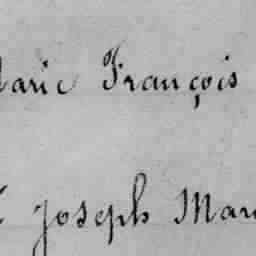 Marie François
Joseph Mar